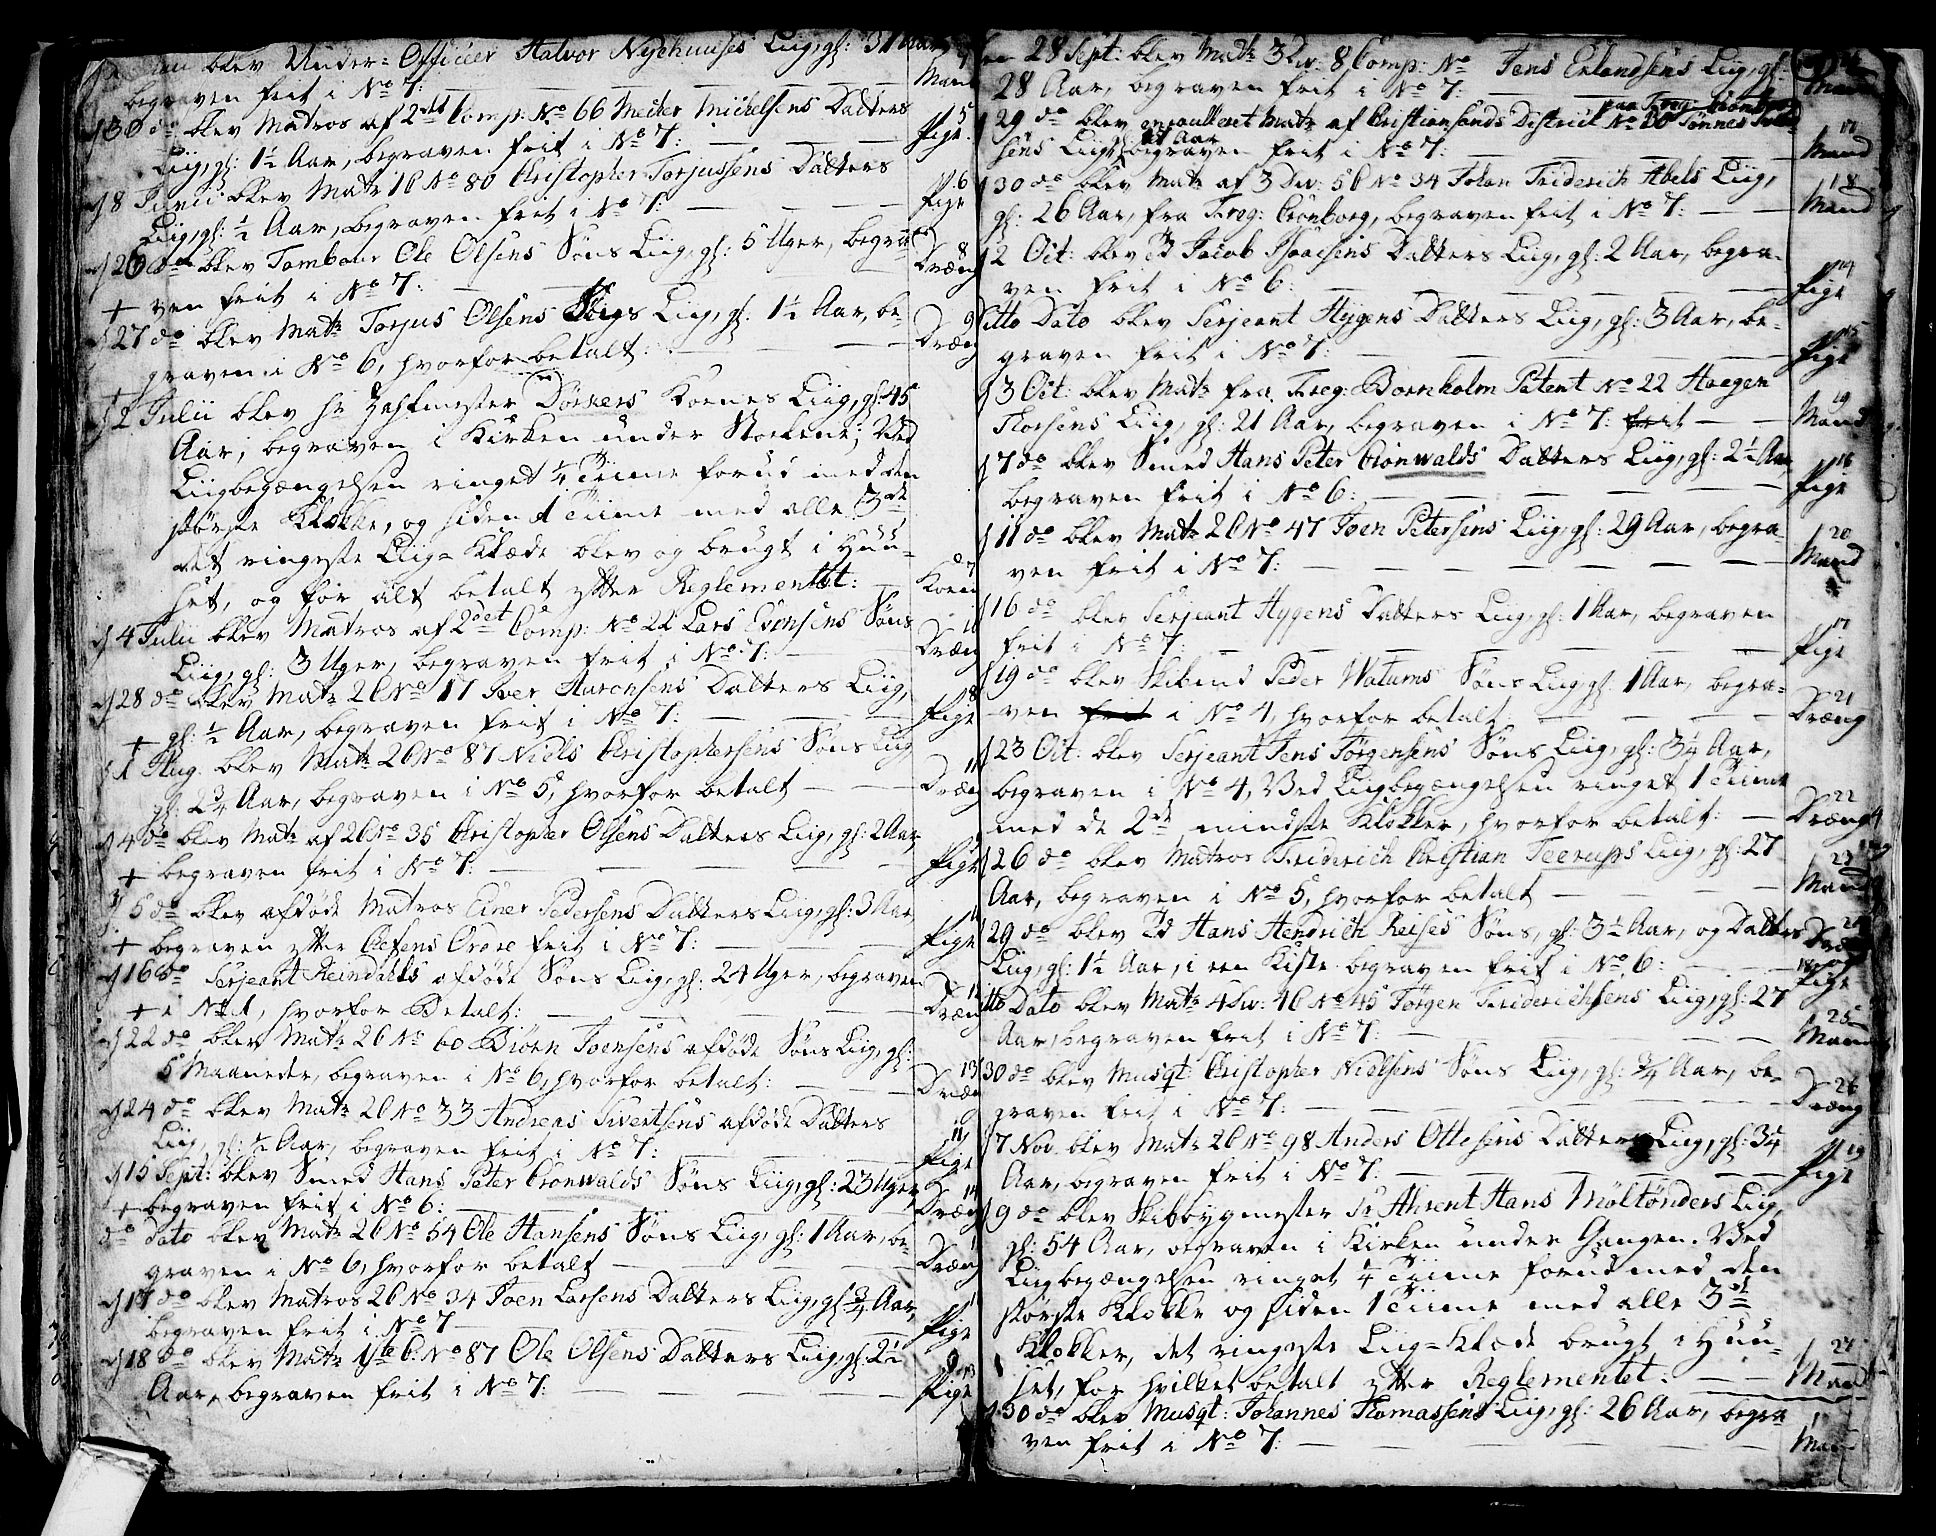 blev Under-Officeer Halvor Nyehuuses Liig, gl: 31 Aar,
begraven frit i No 7: Mand
d 30 do blev Matros af 2det Comp: No 66 Mickelsens Datters 5
Liig, gl: 1½ Aar, begraven frit i No 7: Pige
d 8 Junii blev Matr 1 C No 80 Christopher Torjussens Datters 6
Liig, gl: ½ Aar, begraven frit i No 7: Pige
d 20 do blev Tambour Ole Olsens Søns Liig, gl: 5 Uger, begra- 8
+ ven frit i No 7: Dræng
d 27 do blev Matr Torjus Olsens Liig, gl: 1½ Aar, be- 9
graven i No 6, hvorfor betalt: Dræng
+
d 2 Julii blev Hr Dørkers Kones Liig, gl: 45
Aar, begraven i Kirken under Stoelene; Ved
Liigbegængelsen ringet ¼ Tiime forud med den
største Klokke, og siden 1 Tiime med alle 3de
det ringeste Liig-Klæde blev og brugt i Huu-
set, og for alt betalt efter Reglementet: 7 Kone
d 4 Julii blev Matros af 2det Comp: No 22 Lars Evensens Søns 10
Liig, gl: 3 Uger, begraven frit i No 7: Dræng
d 28 do blev Matr 2 C No 17 Iver Aaronsens Datters Liig, 8
+ gl: ½ Aar, begraven frit i No 7: Pige
d 1 Aug. blev Matr 2 C No 87 Niels Christophersens Søns Liig 11
gl: 2¾ Aar, begraven i No 5, hvorfor betalt Dræng
d 4 do blev Matr af 2 C No 35 Christopher Olsens Datters Liig, gl: 2 Aar
+ begraven frit i No 7: Pige
d 5 do blev afdøde Matros Einer Pedersens Datters Liig, gl: 3 Aar,
+ begraven efter Chefens Ordre frit i No 7: Pige
d 16 do Serjeant Reindalls afdøde Søns Liig, gl: 24 Uger, begraven 12
+ i No 1, hvorfor Betalt: Dræng
d 22 do blev Matr 2 C No 60 Biørn Joensens afdøde Søns Liig, gl: 13
5 Maaneder, begraven i No 6, hvorfor betalt: Dræng
d 24 do blev Matr 2 C No 33 Andreas Sivertsens afdøde Datters
Liig, gl: ½ Aar, begraven frit i No 7: Pige
d 15 Sept: blev Smed Hans Peter Crönwalds Søns Liig, gl: 23 Uger, 14
+ begraven frit i No 6: Dræng
do Dato blev Matr 2 C No 54 Ole Hansens Søns Liig, gl: 1 Aar, be-
graven i No 6, hvorfor betalt Dræng
d 17 do blev Matros 2 C No 34 Joen Larsens Datters Liig, gl: ¾ Aar,
begraven frit i No 7 Pige
d 18 do blev Matr 1ste C: No 87 Ole Olsens Datters Liig, gl: 2½
Aar, begraven frit i No 7: Pige
28 Sept: blev Matr 3 Div: 8 Comp: No Jens Erlandsens Liig, gl:
28 Aar, begraven frit i No 7: Mand
paa Freg:
29 do blev enroulleret Matr af Christiansands District No 20 Tønnes
17 Aar
sens Liig, begraven frit i No 7: 17 Mand
30 do blev Matr af 3 Div: 5 C No 34 Johan Friderich Abels Liig, 18
gl: 26 Aar, fra Freg: Crönborg, begraven frit i No 7: Mand
2 Oct: blev Jacob Isacsens Datters Liig, gl: 2 Aar, begra-
ven frit i No 6: 14 Pige
Ditto Dato blev Serjeant Hygens Datters Liig, gl: 3 Aar, be-
graven frit i No 7: 15 Pige
3 Oct: blev Matr fra Freg: Bornholm Patent No 22 Haagen 19
Thorsens Liig, gl: 21 Aar, begraven i No 7: frit Mand
7 do blev Smed Hans Peter Crönwalds Datters Liig, gl: 2½ Aar 16
begraven frit i No 6: Pige
11 do blev Matr 2 C No 47 Joen Petersens Liig, gl: 29 Aar, begra- 20
ven frit i No 7: Mand
16 do blev Serjeant Hygens Datters Liig, gl: 1 Aar, begraven
frit i No 7: 17 Pige
19 do blev Skibmd Peder Watums Søns Liig, gl: 1 Aar, begra- 21
ven frit i No 4, hvorfor betalt Dræng
23 Oct: blev Serjeant Jens Jørgensens Søns Liig, gl: 3¼ Aar,
begraven i No 4, Ved Liigbegængelsen ringet 1 Tiime
med de 2de mindste Klokker, hvorfor betalt: 22 Dræng
26 do blev Matros Friderich Christian Teerups Liig, gl: 27 23
Aar, begraven i No 5, hvorfor betalt Mand
29 do blev Hans Hendrich Reises Søns, gl: 3½ Aar, og Datters 24 Dræng
Liig, gl: 1½ Aar, i een Kiste begraven frit i No 6: 18 Pige
Ditto Dato blev Matr 4 Div: 4 C No 45 Jørgen Friderichsens Liig, gl: 27 25
Aar, begraven frit i No 7: Mand
30 do blev Musqt: Christopher Nielsens Søns Liig, gl: ¾ Aar, be- 26
graven frit i No 7: Dræng
7 Nov. blev Matr 2 C No 98 Anders Ottesens Datters Liig, gl: 3¼ 19
Aar, begraven frit i No 7: Pige
9 do blev Skibbygmester Sr Ahrent Hans Möltönders Liig,
gl: 54 Aar, begraven i Kirken under Gangen. Ved
Liigbegængelsen ringet ¼ Tiime forud med den
største Klokke og siden 1 Tiime med alle 3de
Klokker, det ringeste Liig-Klæde brugt i Huu- 27
set, for hvilket betalt efter Reglementet: Mand
30 do blev Musqt: Johannes Thomassens Liig, gl: 26 Aar, begra-
ven frit i No 7: Mand